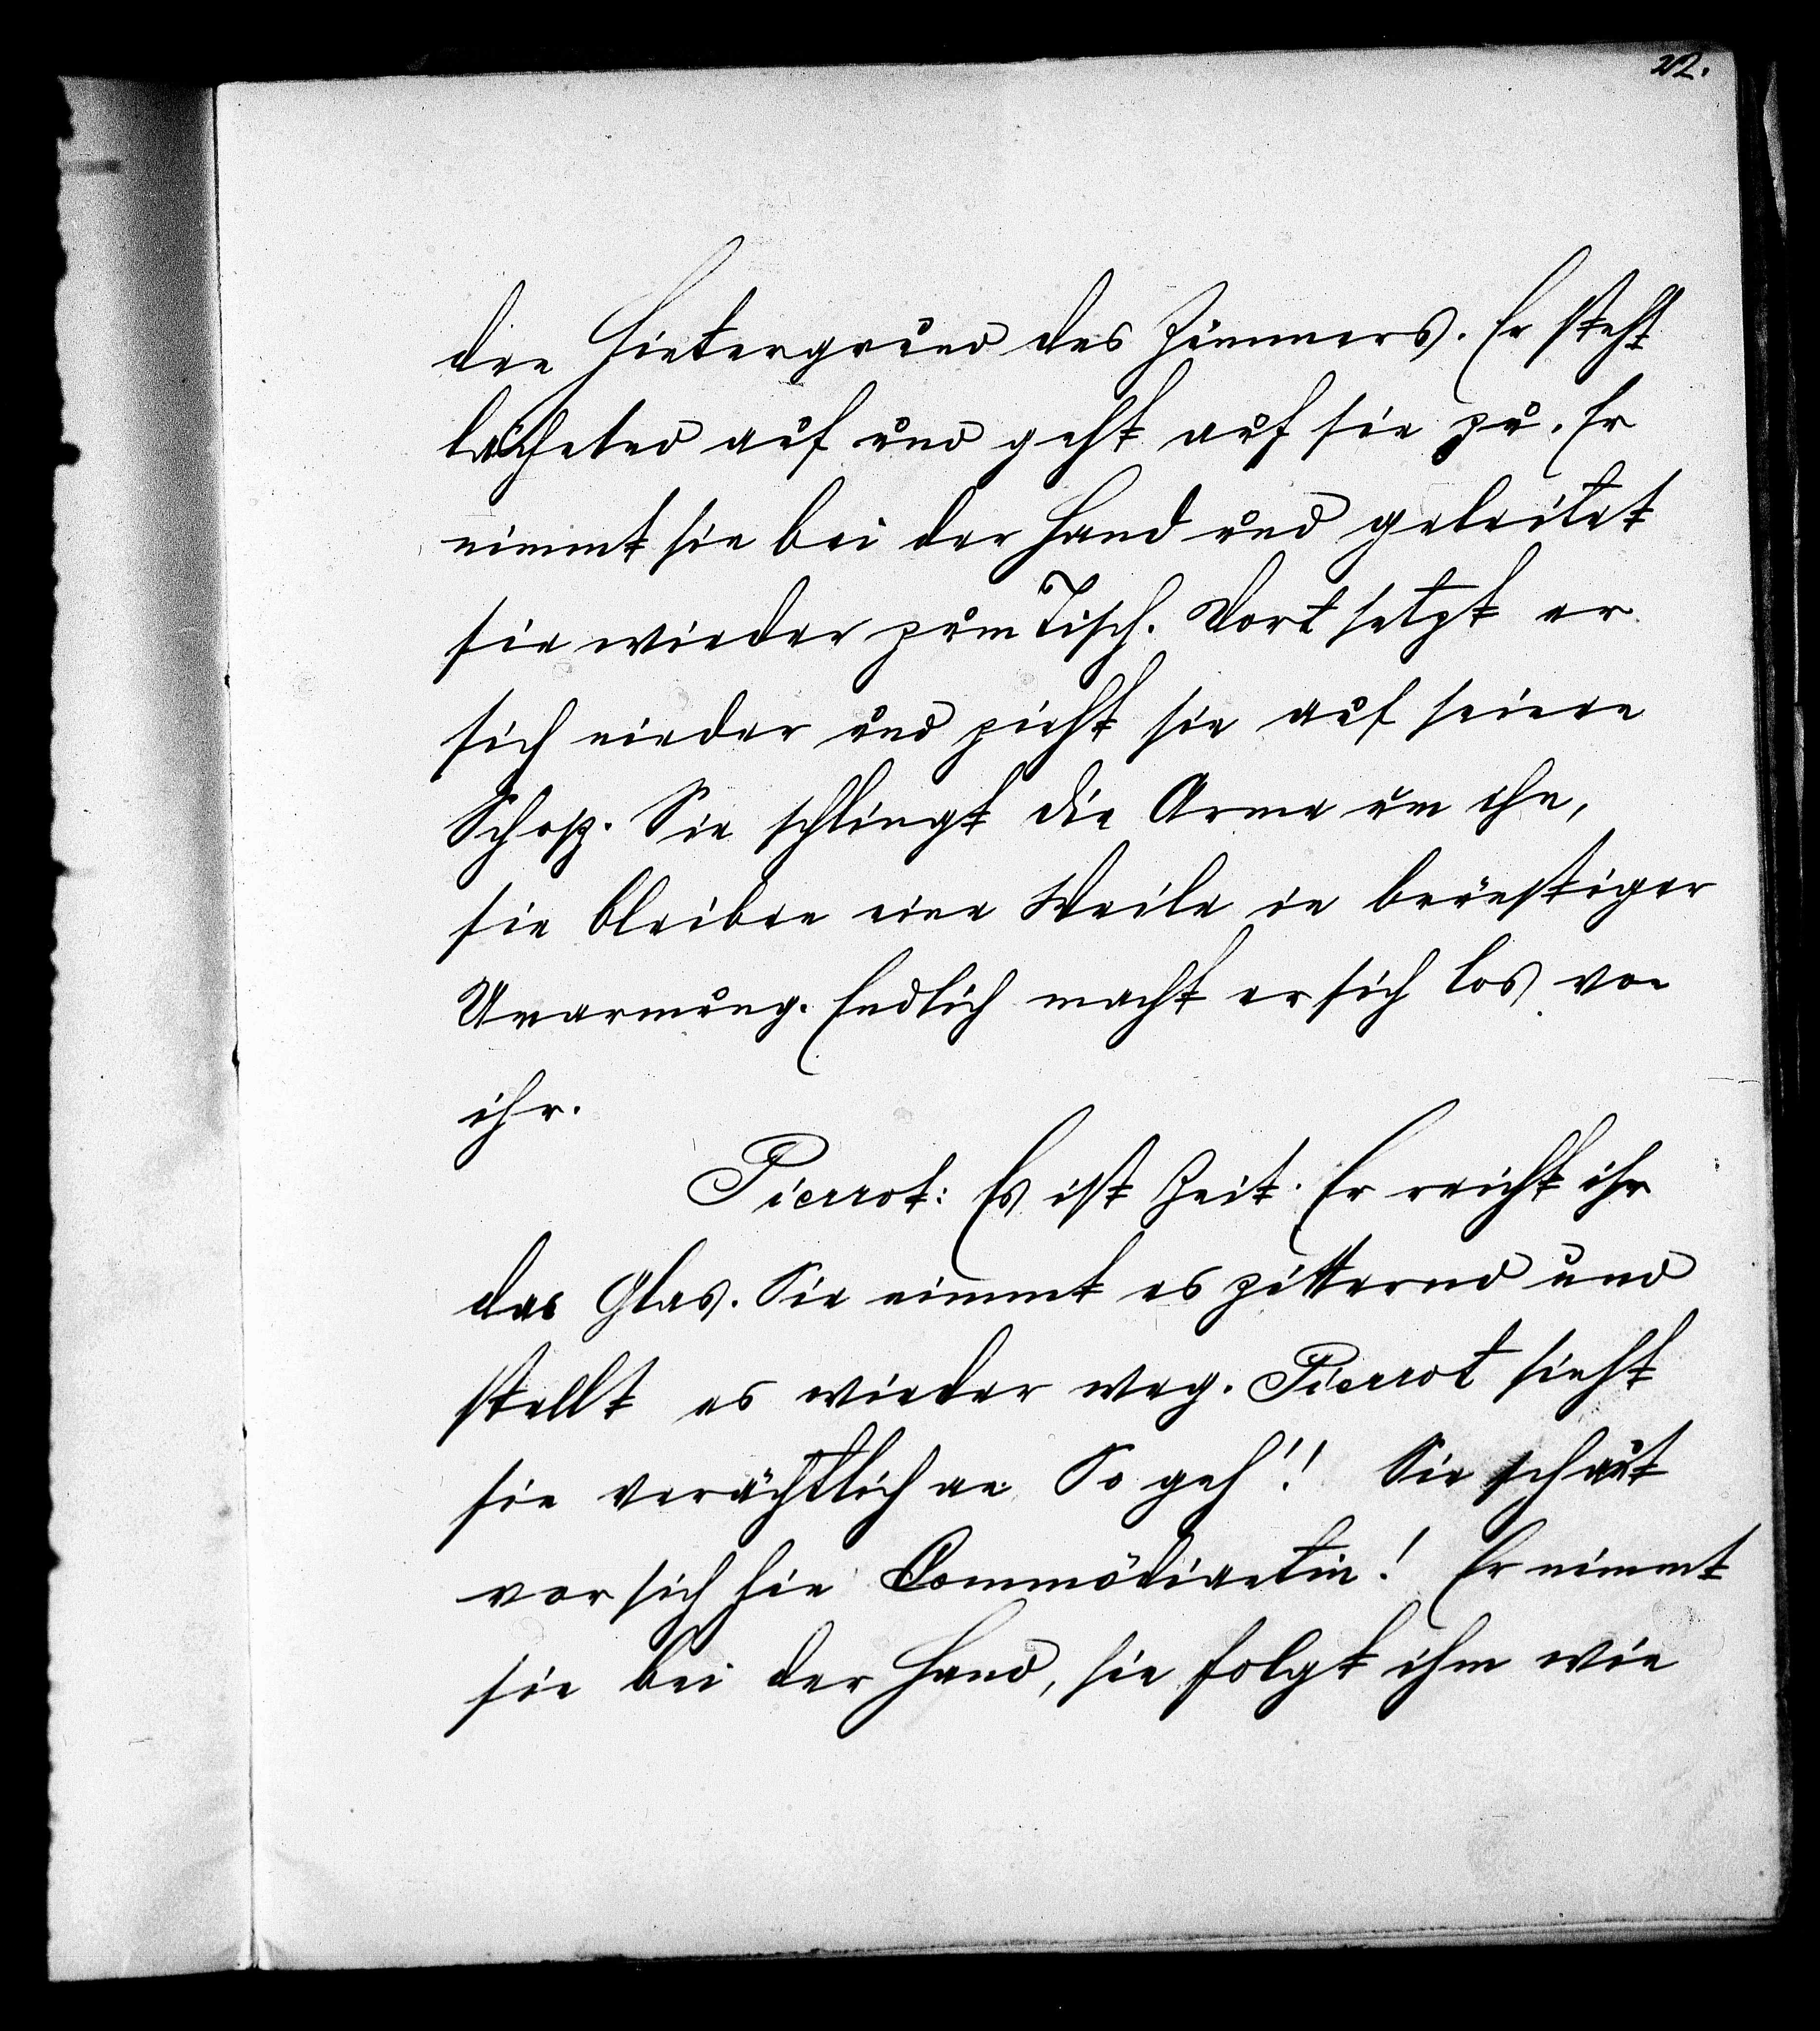 22.
den Hintergrund des Zimmers. Er steht
lächelnd auf und geht auf sie zu. Er
nimmt sie bei der Hand und geleitet
sie wieder zum Tisch. Dort setzt er
sich nieder und zieht sie auf seinen
Schoß. Sie schlingt die Arme um ihn,
sie bleiben eine Weile in brünstiger
Umarmung. Endlich macht er sich los von
ihr.
Pierrot: Es ist Zeit. Er reicht ihr
das Glas. Sie nimmt es zitternd und
stellt es wieder weg. Pierrot sieht
sie verächtlich an: So geh'! Sie schaut
vor sich hin Commödiantin! Er nimmt
sie bei der Hand, sie folgt ihm wie